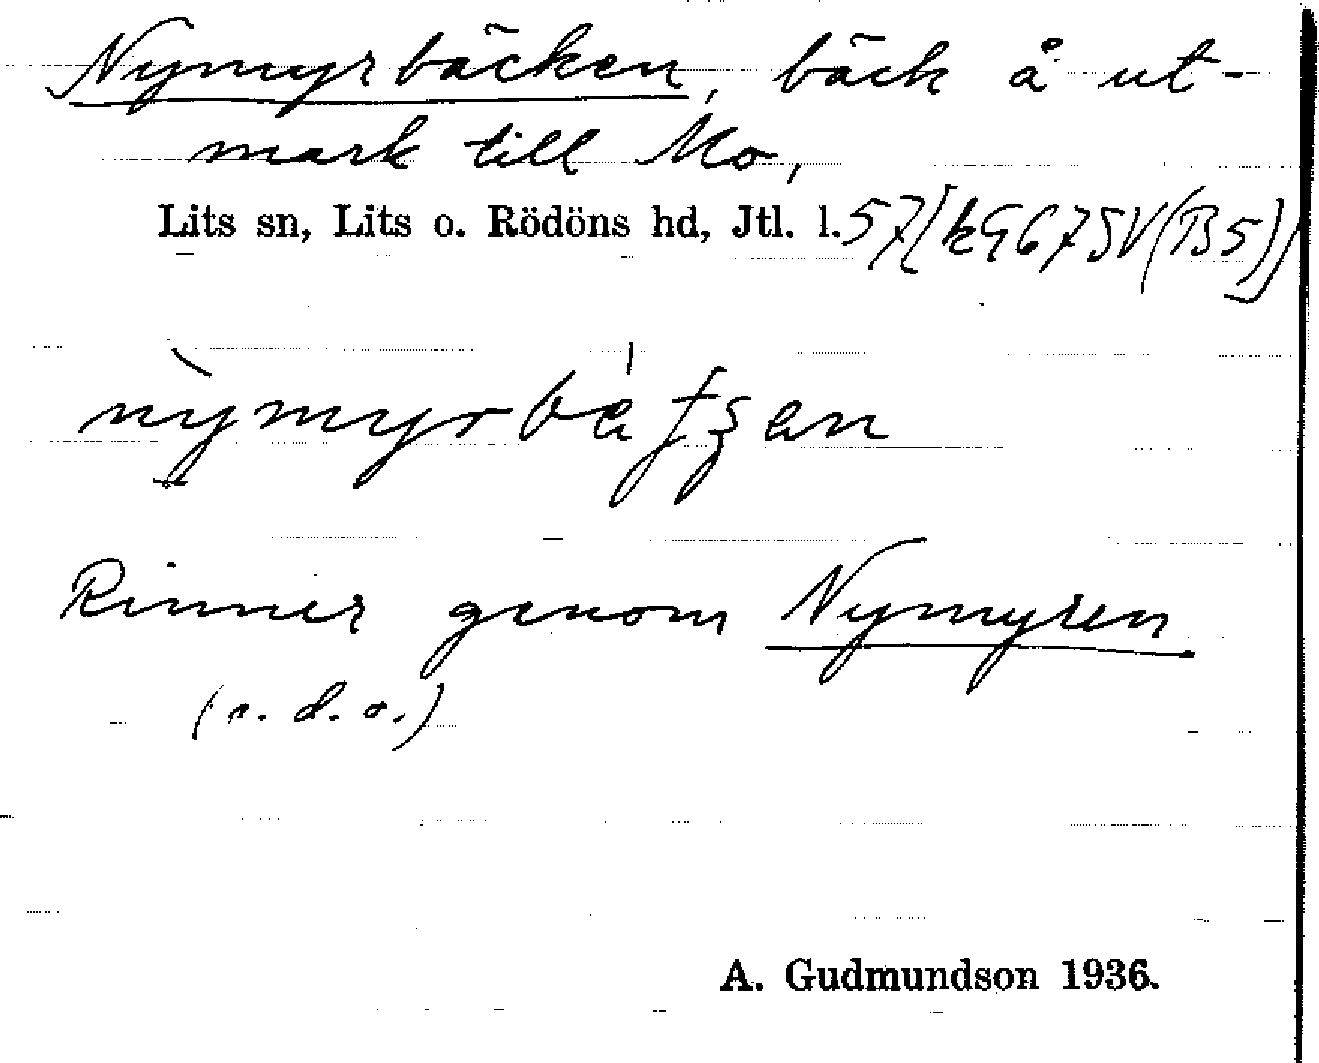 Nymyrbäcken, bäck å ut-
mark till Mo,
Lits sn, Lits o. Rödöns hd, Jtl. l. 57[k9675V(B5)]
Rinner genom Nymyren
(s. d. o.)
A. Gudmundson 1936.